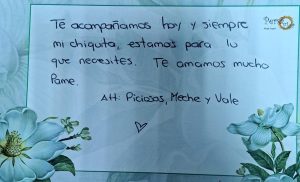 Te acompañamos hoy y siempre
mi chiquita, estamos para lo
que necesites. Te amamos mucho
Pame.
Att: Piciosas, Meche y Vale